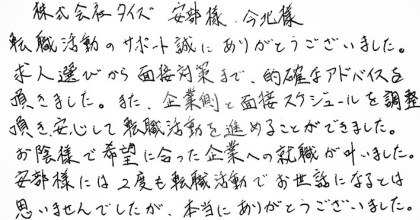 株式会社タイズ 安部様、今北様
転職活動のサポート誠にありがとうございました。
求人選びから面接対策まで、的確なアドバイスを
頂きました。また、企業側と面接スケジュールを調整
頂き、安心して転職活動を進めることができました。
お陰様で希望に合った企業への就職が叶いました。
安部様には2度も転職活動でお世話になるとは
思いませんでしたが、本当にありがとうございました。